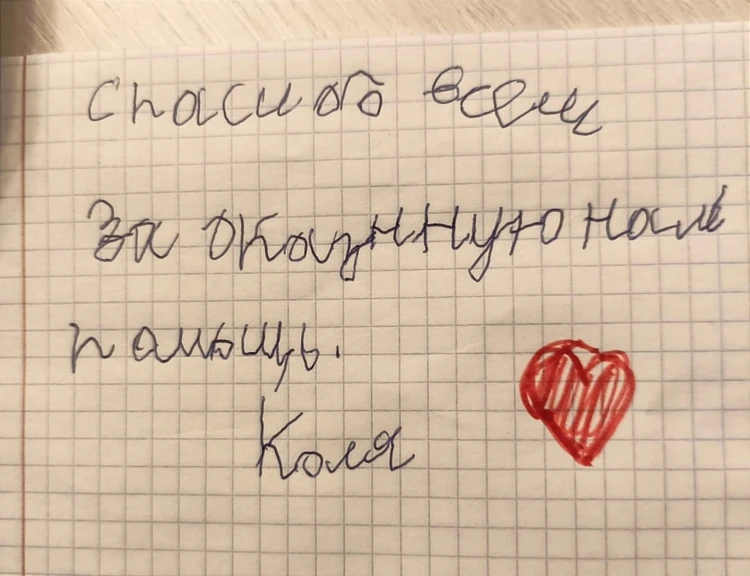 Спасибо всем
За оказнную нам
памыщь.
Коля